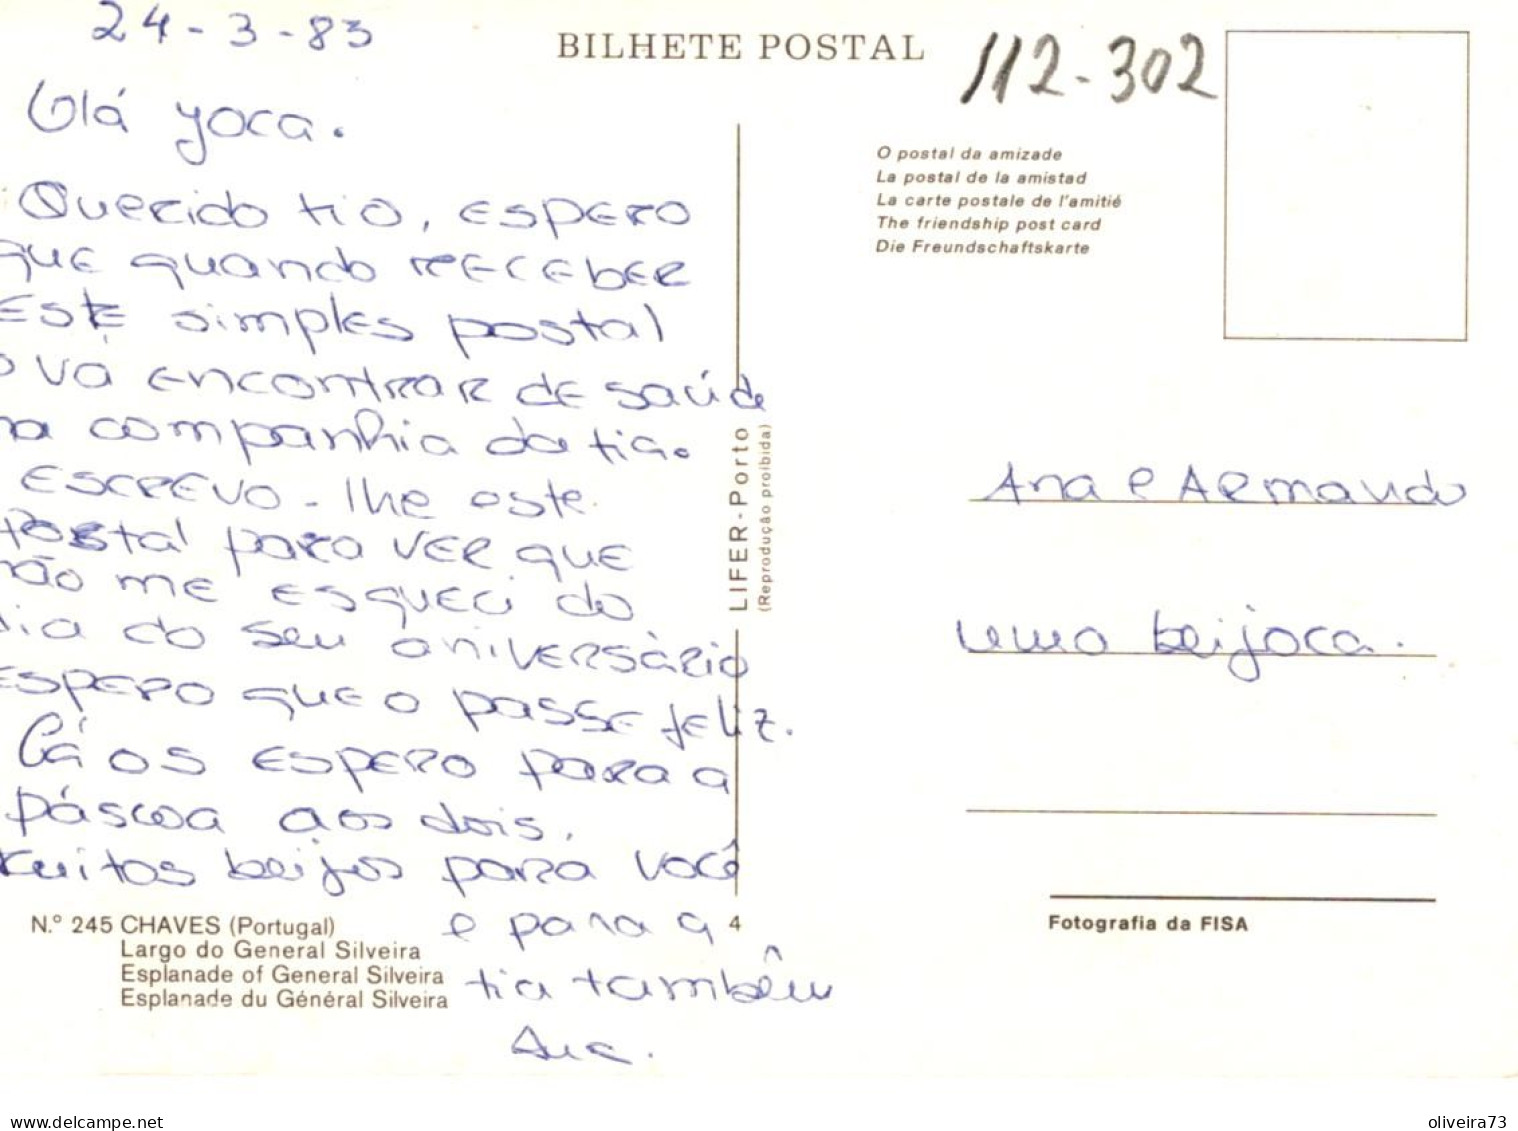 24-3-83
Olá yoca.
Querido tio, espero
que quando receber
este simples postal
o vá encontrar de saúde
na companhia da tia.
escrevo-lhe este
postal para ver que
não me esqueci do
dia do seu aniversário
espero que o passe feliz.
Cá os espero para a
páscoa aos dois,
Muitos beijos para você
e para a
tia também
Ana.
N.° 245 CHAVES (Portugal)
Largo do General Silveira
Esplanade of General Silveira
Esplanade du Général Silveira
BILHETE POSTAL
112-302
O postal da amizade
La postal de la amistad
La carte postale de l'amitié
The friendship post card
Die Freundschaftskarte
LIFER - Porto
(Reprodução proibida)
4
Ana e Armando
uma beijoca.
Fotografia da FISA
www.delcampe.net
oliveira73